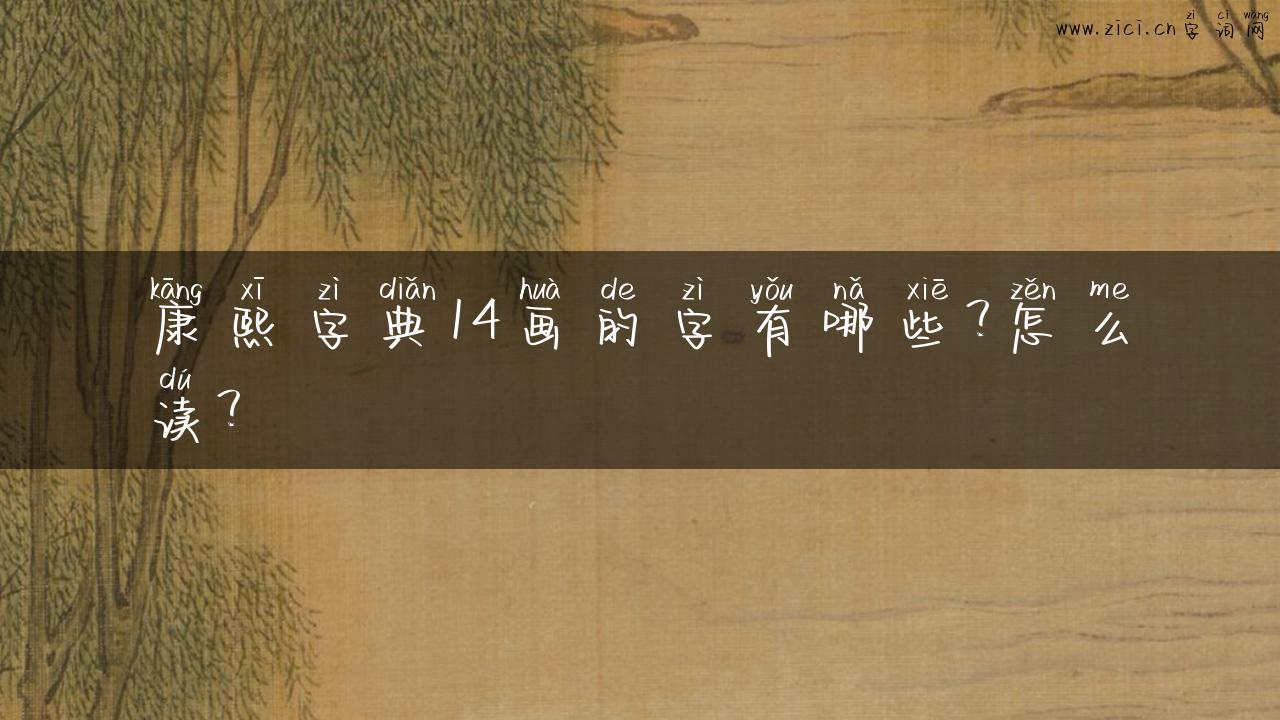 zì cí wǎng
www.zici.cn字词网
kāng xī zì diǎn huà de zì yǒu nǎ xiē zěn me
康熙字典14画的字有哪些?怎么
dú
读?